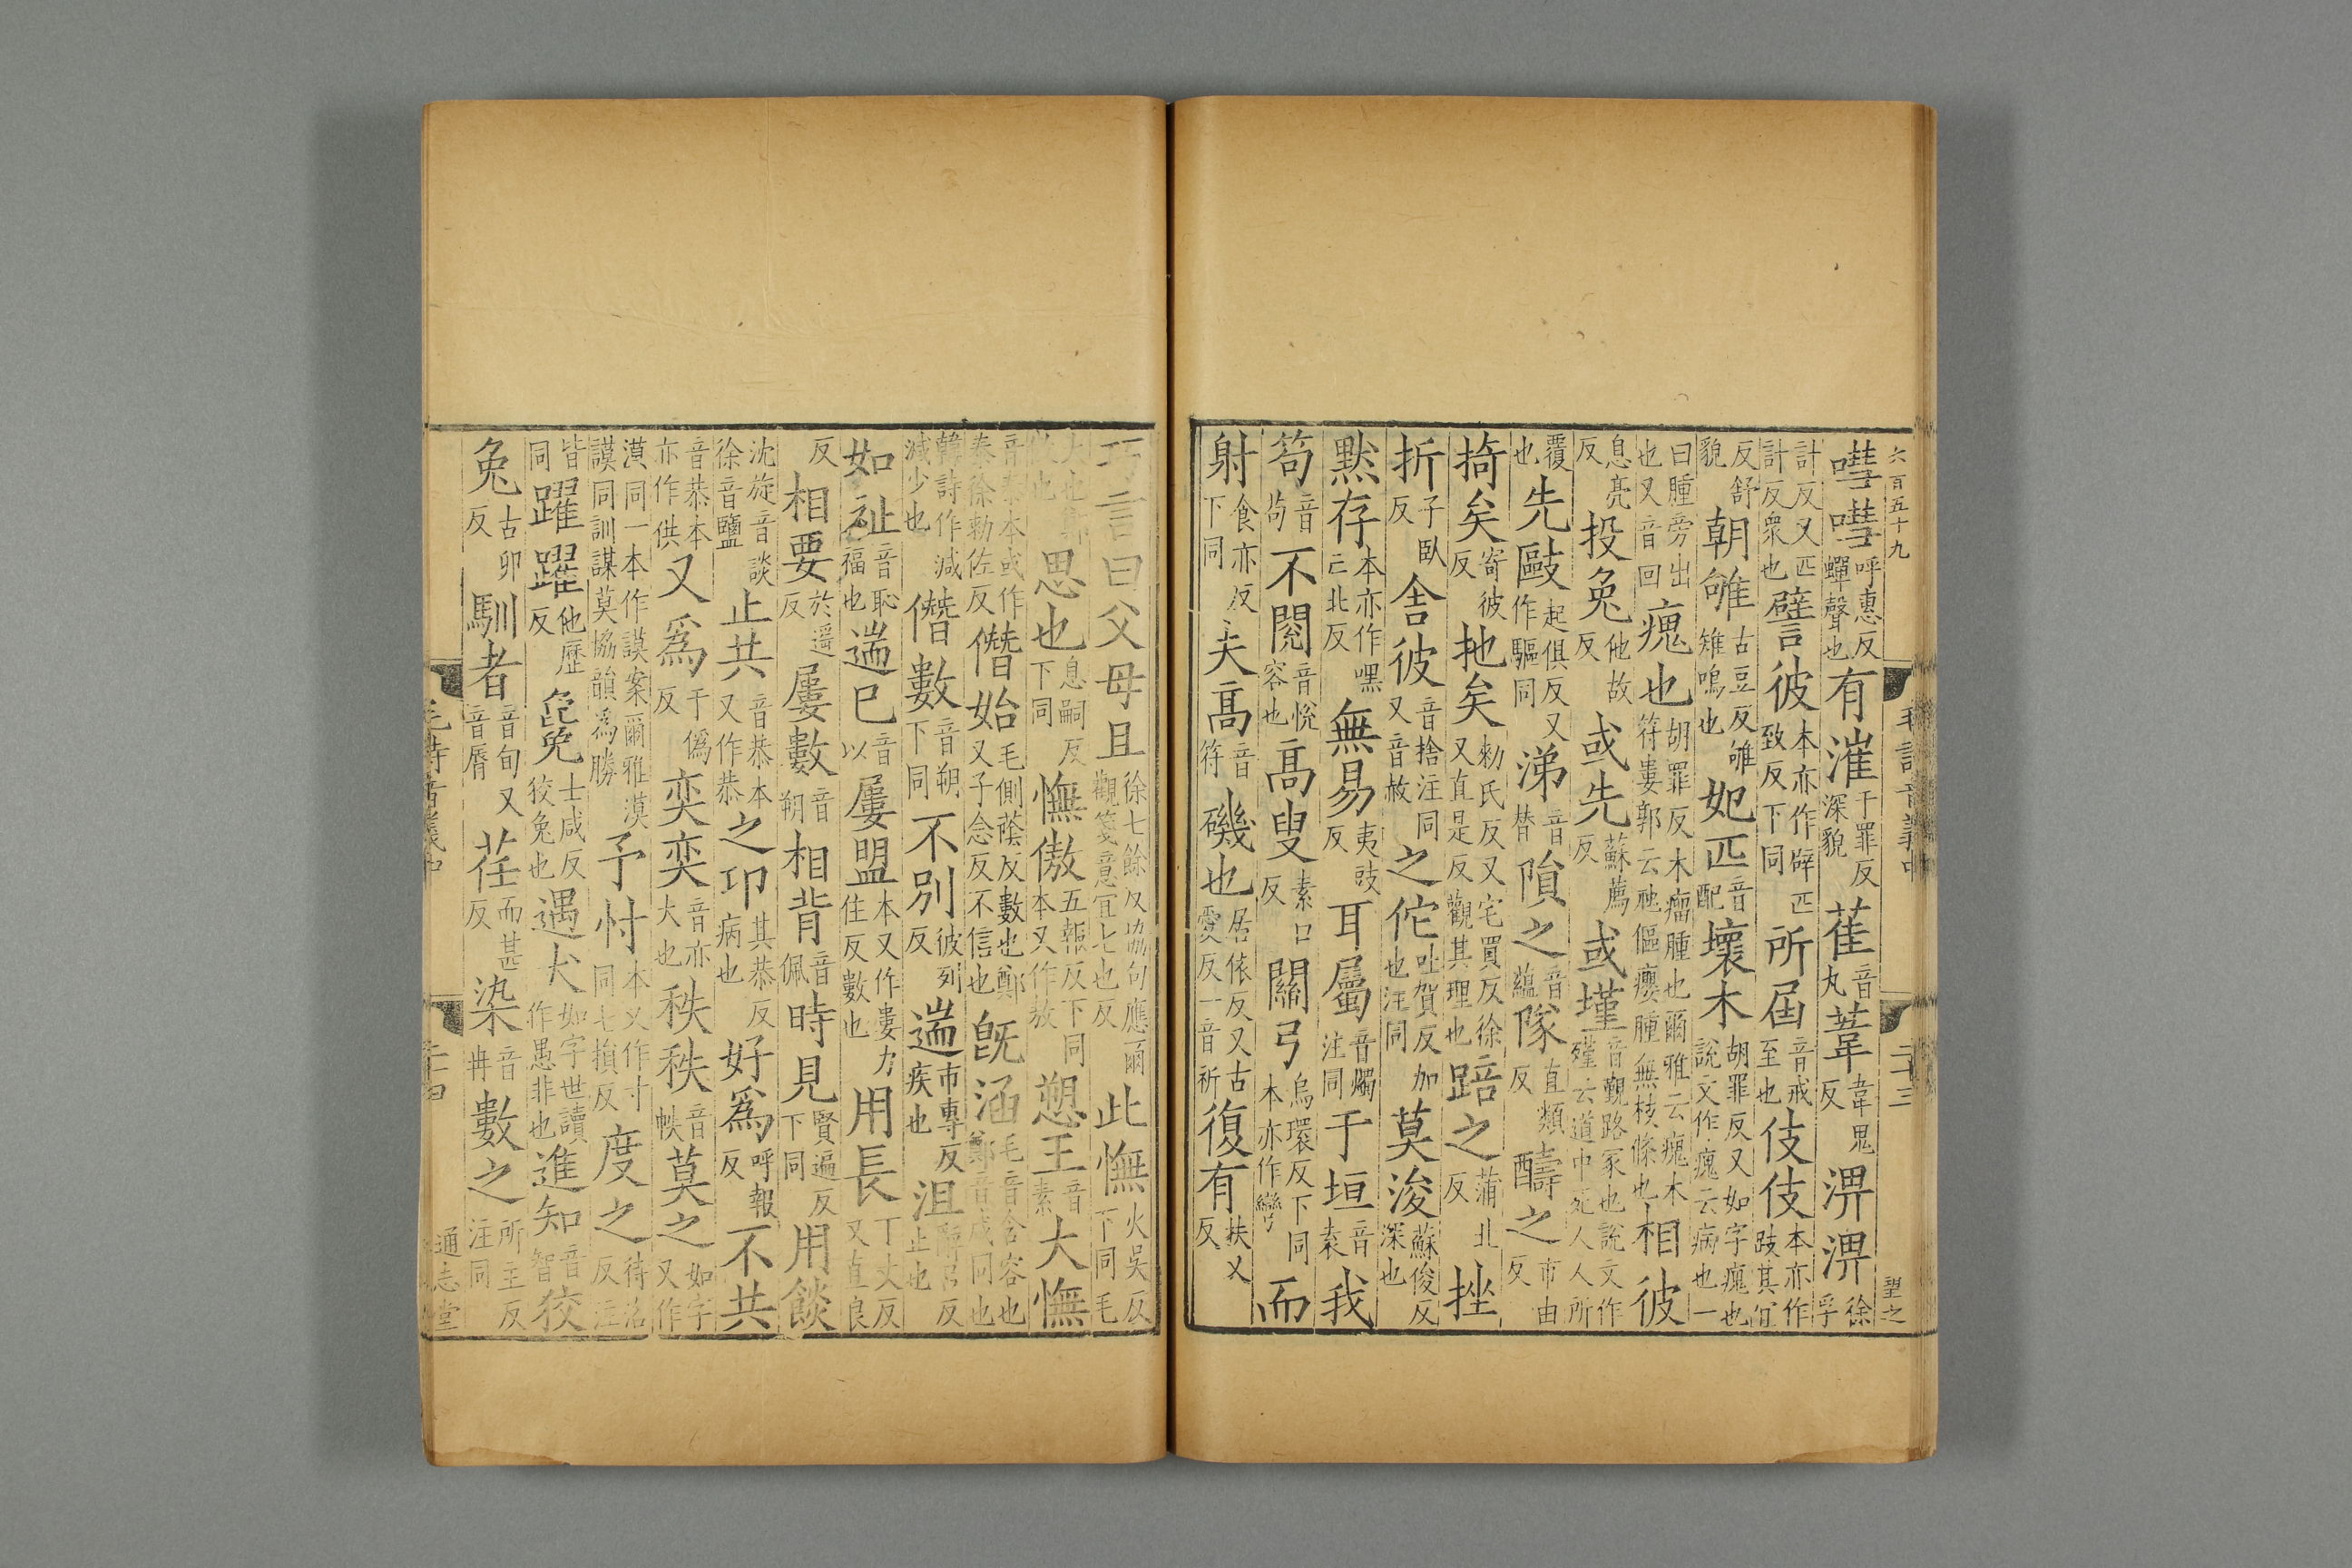 六百五十九 毛詩音義中 二十三 望之
嘒嘒呼惠反蟬聲也有漼千罪反深貌萑音丸葦韋鬼反淠淠徐孚
計反又匹計反衆也譬彼本亦作辟匹致反下同所屆音戒至也伎伎本亦作跂其宜
反舒貌朝雊古豆反雊雉鳴也妃匹音配壞木胡罪反又如字瘣也說文作瘣云病也一
曰腫旁出也又音回瘣也胡罪反木瘤腫也爾雅云瘣木苻婁郭云虺傴癭腫無枝條也相彼
息亮反投兔他故反或先蘇薦反或墐音覲路冢也說文作殣云道中死人人所
覆也先敺起俱反又作驅同涕音替隕之音蘊隊直類反醻之市由反
掎矣寄彼反扡矣勑氏反又宅買反徐又直是反觀其理也踣之蒲北反挫
折子臥反舍彼音捨注同又音赦之佗吐賀反加也注同莫浚蘇俊反深也
默存本亦作嘿亡北反無易夷豉反耳屬音燭注同于垣音袁我
笱音苟不閱音悅容也高叟素口反關弓烏環反下同本亦作彎而
射食亦反下同夫高音符磯也居依反又古愛反一音祈復有扶又反
言曰父母且徐七餘反協句應爾觀箋意宜七也反此憮火吳反下同毛
思也息嗣反下同憮傲五報反下同本又作敖愬王音素大憮
音泰本或作泰徐勑佐反僭始毛側蔭反數也鄭又子念反不信也旣涵毛音含容也鄭音咸同也
韓詩作減減少也僭數音朔下同不別彼列反遄市專反疾也沮辭呂反止也
如祉音恥福也遄巳音以屢盟本又作婁力住反數也用長丁丈反又直良
反相要於遥反屢數音朔相背音佩時見賢遍反下同用餤
沈旋音談徐音鹽止共音恭本又作恭之邛其恭反病也好爲呼報反不共
音恭本亦作供又爲于僞反奕奕音亦大也秩秩音帙莫之如字又作
漠同一本作謨案爾雅漠謨同訓謀莫協韻爲勝予忖本又作寸同七損反度之待洛反注
皆同躍躍他歷反毚兔士咸反狡兔也遇犬如字世讀作愚非也進知音智狡
兔古卯反馴者音旬又音脣荏而甚反染音冉數之所主反注同
毛詩音義中 二十四 通志堂